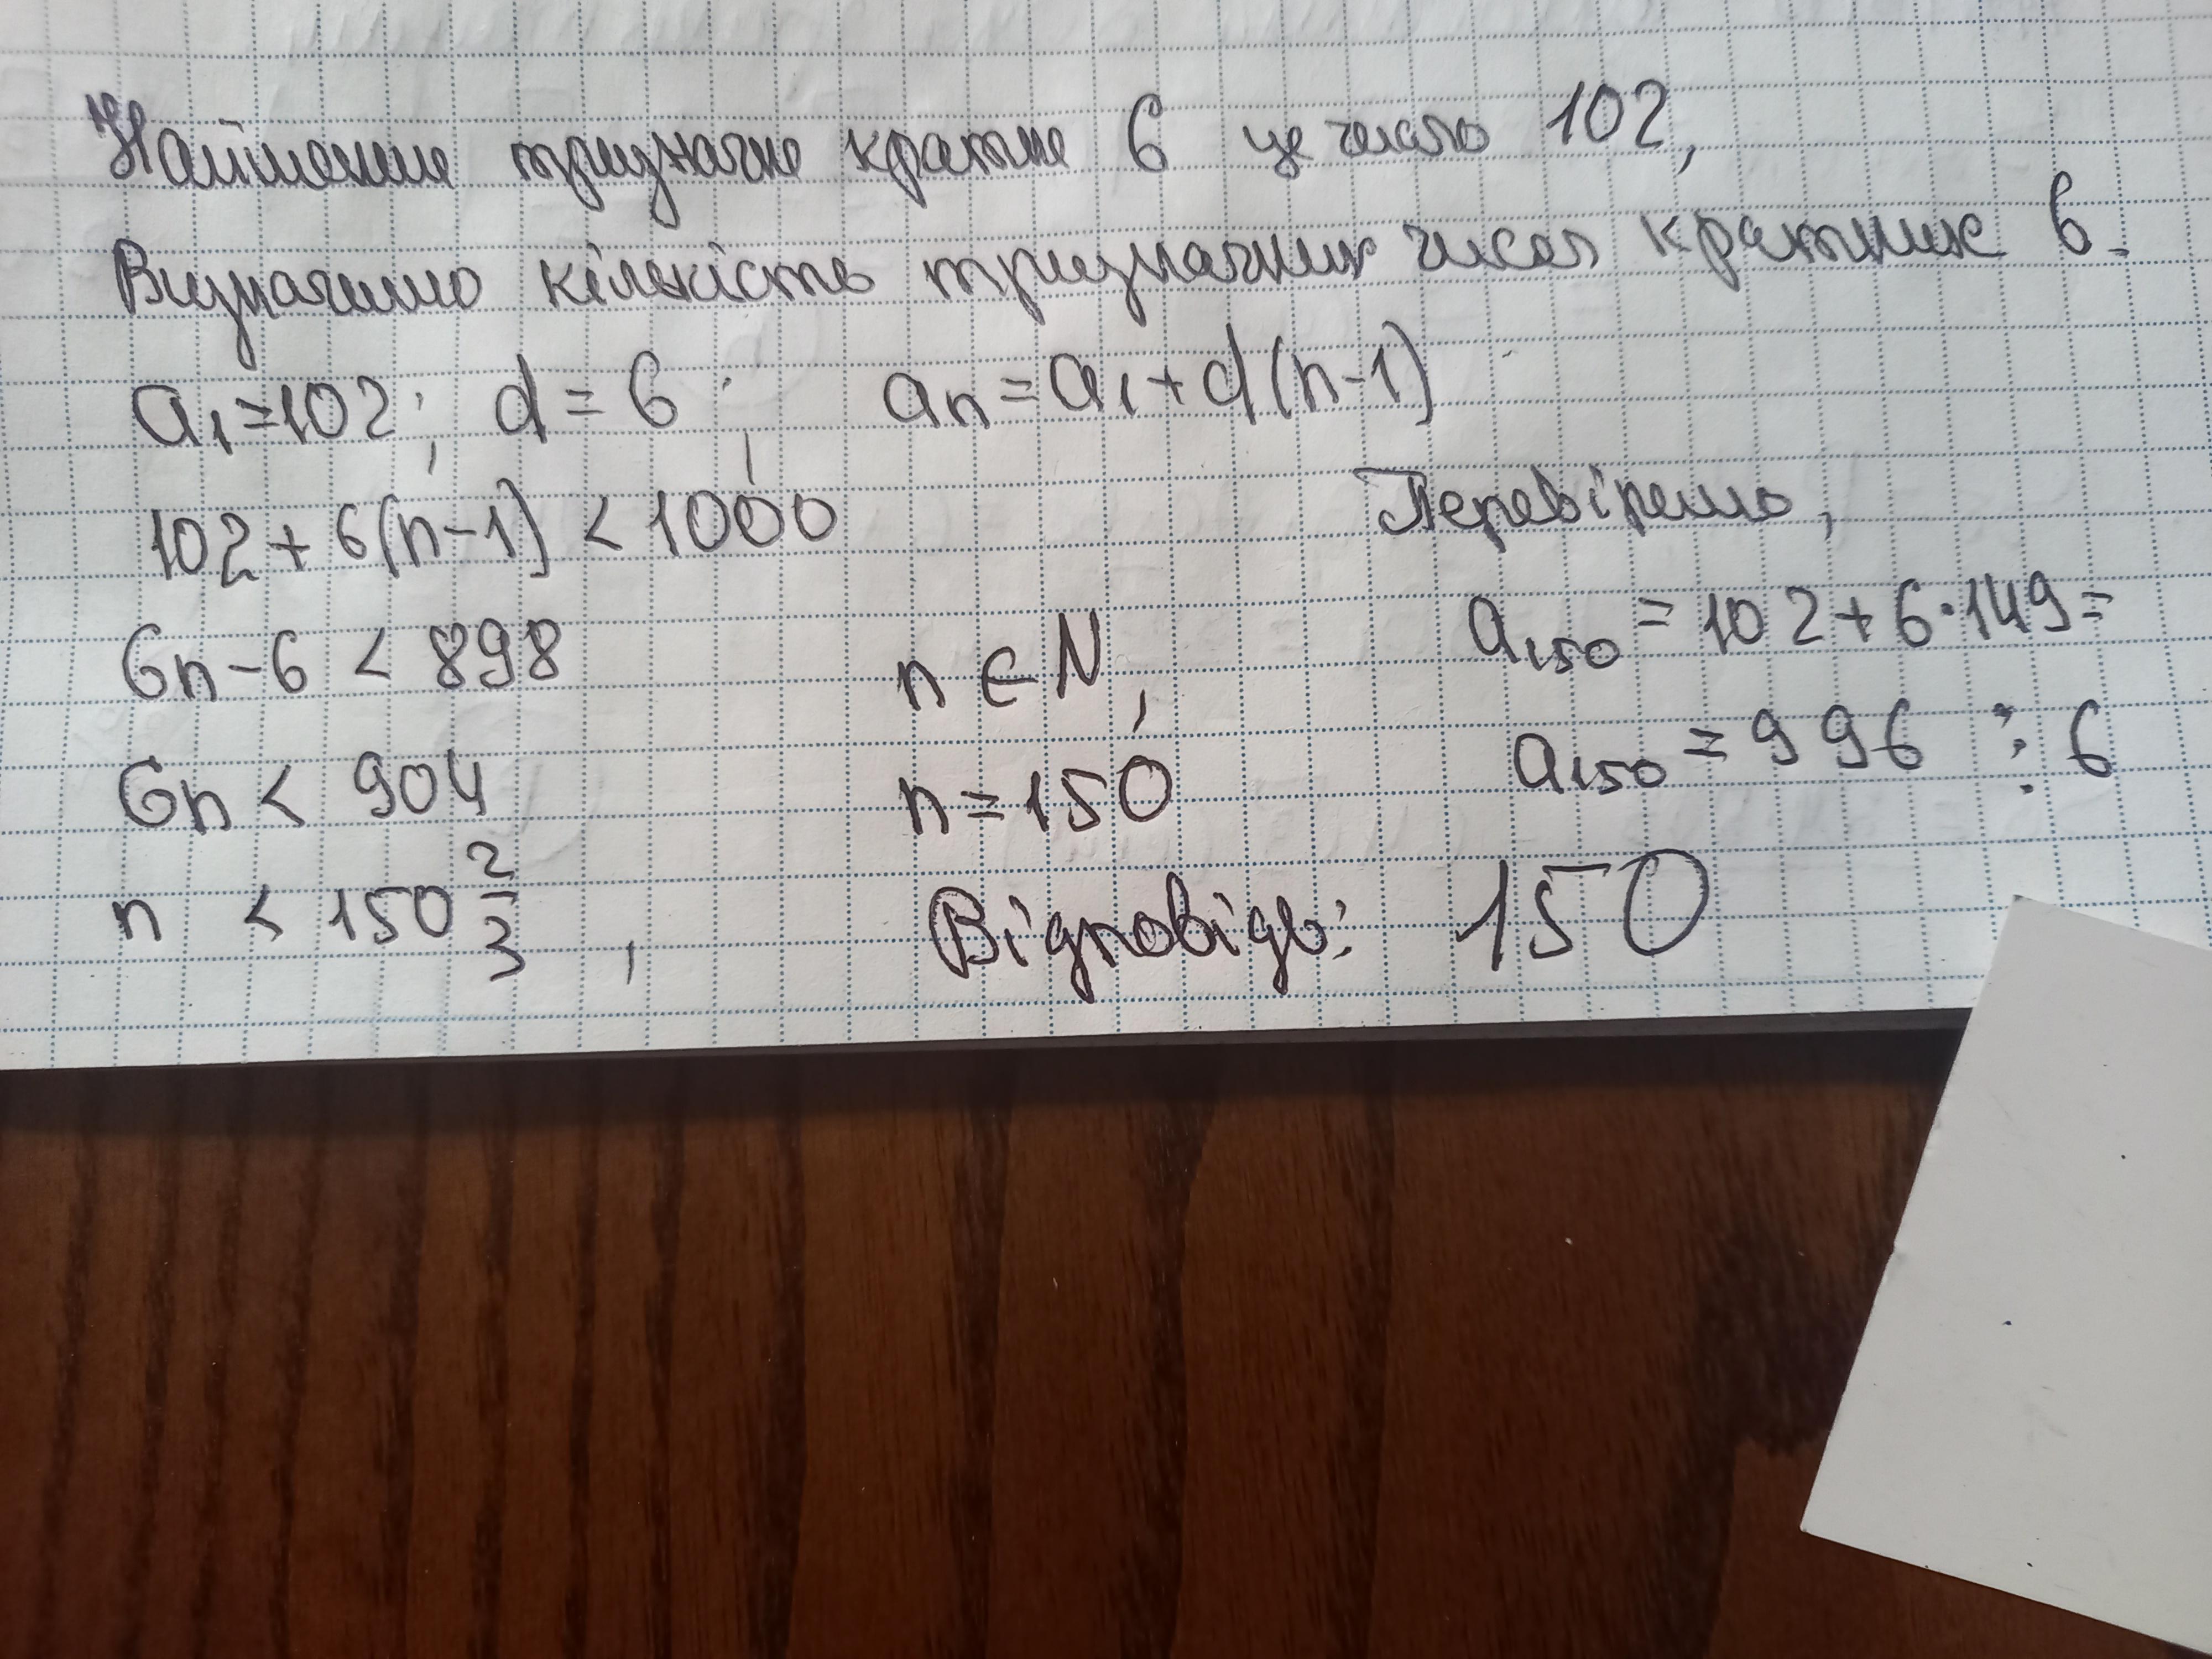 Найменше трицначне кратне 6 це число 102,
Визначимо кількість трицначних чисел кратних 6.
a₁=102; d=6; aₙ=a₁+d(n-1)
102+6(n-1)<1000
Перевіримо,
6n-6<898
n∈N,
a₁₅₀=102+6·149=
6n<904
n=150
a₁₅₀=996 ⋮ 6
n<150 2/3,
Відповідь: 150